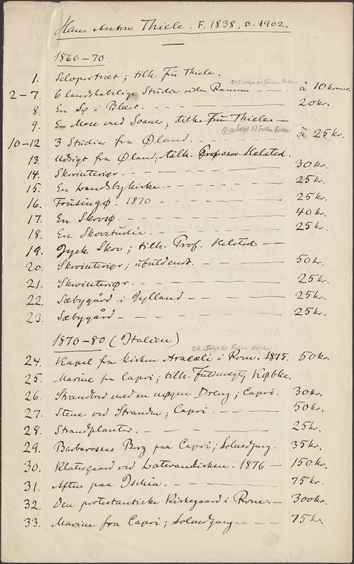 Hans Anton Thiele. F. 1838, D. 1902.
1860-70
1. Selvportræt; tilh. Fru Thiele.
2-7. 6 landskabelige Studier uden Ramme - - à 10 kroner
8. En Sø i Blæst. - - - 20 kr.
9. En Mose med Svane; tilh. Fru Thiele -
10-12 3 Studier fra Øland. - - - à 25 kr.
13. Udsigt fra Øland; tilh. Professor Kelsted.
14. Skovinteriør - - - 30 kr.
15. En Landsbykirke - - - 25 kr.
16. 1870 - - - 25 kr.
17. En Skovsø - - - 40 kr.
18. En Skovstudie - - - 25 kr.
19. Jysk Skov; tilh. Prof. Kelsted -
20. Skovinteriør; ufuldendt. - - 50 kr.
21. Skovinteriør - - - 25 kr.
22. Sæbygård i Jylland - - - 25 kr.
23. Sæbygård - - - 25 kr.
1870-80 (Italien)
24. Kapel fra Kirken Aracoeli i Rom. 1875. 50 kr.
25. Marine fra Capri; tilh. Købke.
26. Strandbred med en nøgen Dreng; Capri. 30 kr.
27. Stene ved Stranden; Capri - - - 50 kr.
28. Strandplanter. - - - 25 kr.
29. Barbarossas Borg paa Capri; Solnedgang. 35 kr.
30. Klostergaard ved Laterankirken. 1876 - 150 kr.
31. Aften paa Ischia. - - - 75 kr.
32. Den protestantiske Kirkegaard i Rom - 300 kr.
33. Marine fra Capri; Solnedgang - - - 75 kr.